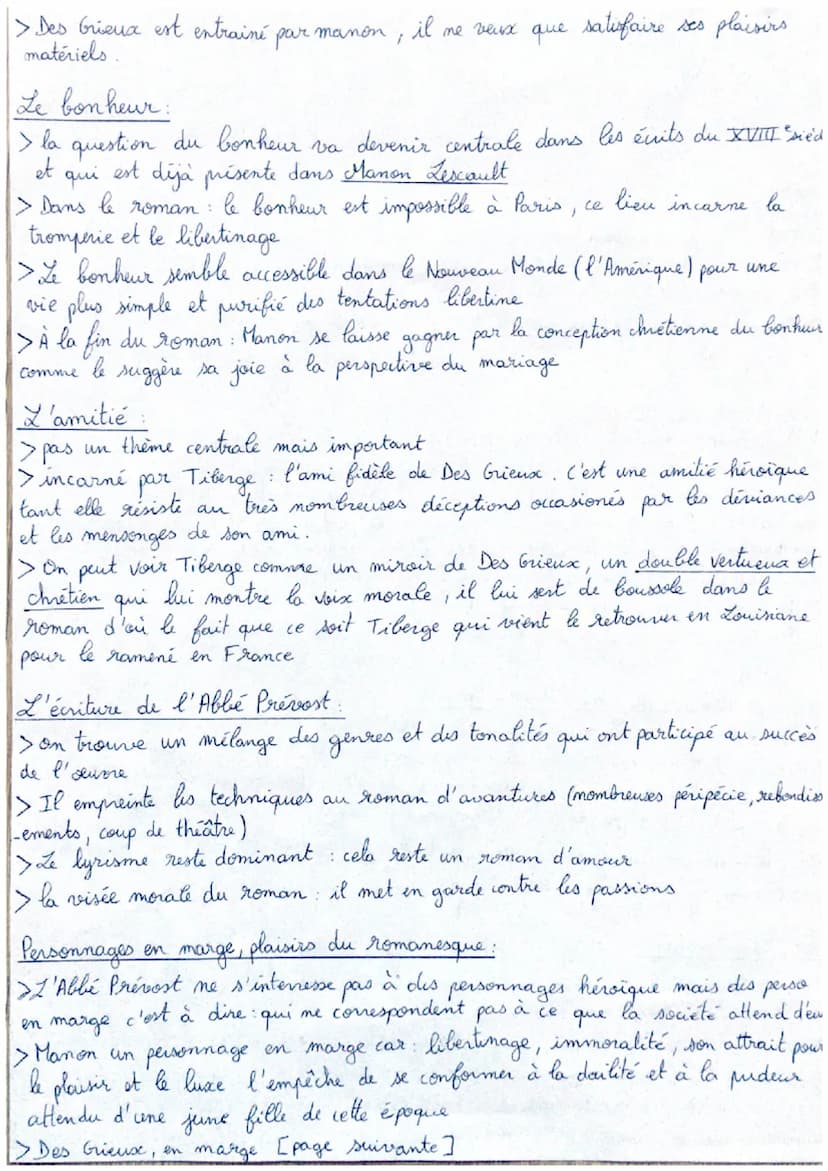 > Des Grieux est entrainé par manon, il ne veux que satisfaire ses plaisirs
matériels.
Le bonheur :
> la question du bonheur va devenir centrale dans les écrits du XVIIIe siècl
et qui est déjà présente dans Manon Lescault
> Dans le roman : le bonheur est impossible à Paris, ce lieu incarne la
tromperie et le libertinage
> Le bonheur semble accessible dans le Nouveau Monde (l'Amérique) pour une
vie plus simple et purifié des tentations libertine
> À la fin du roman : Manon se laisse gagner par la conception chrétienne du bonheur
comme le suggère sa joie à la perspective du mariage
L'amitié :
> pas un thème centrale mais important
> incarné par Tiberge : l'ami fidèle de Des Grieux. C'est une amitié héroïque
tant elle résiste au très nombreuses déceptions occasionés par les déviances
et les mensonges de son ami.
> On peut voir Tiberge comme un miroir de Des Grieux, un double vertueux et
chrétien qui lui montre la voix morale, il lui sert de boussole dans le
roman d'où le fait que ce soit Tiberge qui vient le retrouver en Louisiane
pour le ramené en France
L'écriture de l'Abbé Prévost :
> on trouve un mélange des genres et des tonalités qui ont participé au succès
de l'œuvre
> Il empreinte les techniques au roman d'avantures (nombreuses péripécie, rebondiss
-ements, coup de théâtre)
> Le lyrisme reste dominant : cela reste un roman d'amour
> la visée morale du roman : il met en garde contre les passions
Personnages en marge, plaisirs du romanesque :
> L'Abbé Prévost ne s'interresse pas à des personnages héroïque mais des perso
en marge c'est à dire : qui ne correspondent pas à ce que la société attend d'eu
> Manon un personnage en marge car : libertinage, immoralité, son attrait pour
le plaisir et le luxe l'empêche de se conformer à la docilité et à la pudeur
attendu d'une june fille de cette époque
> Des Grieux, en marge [page suivante]